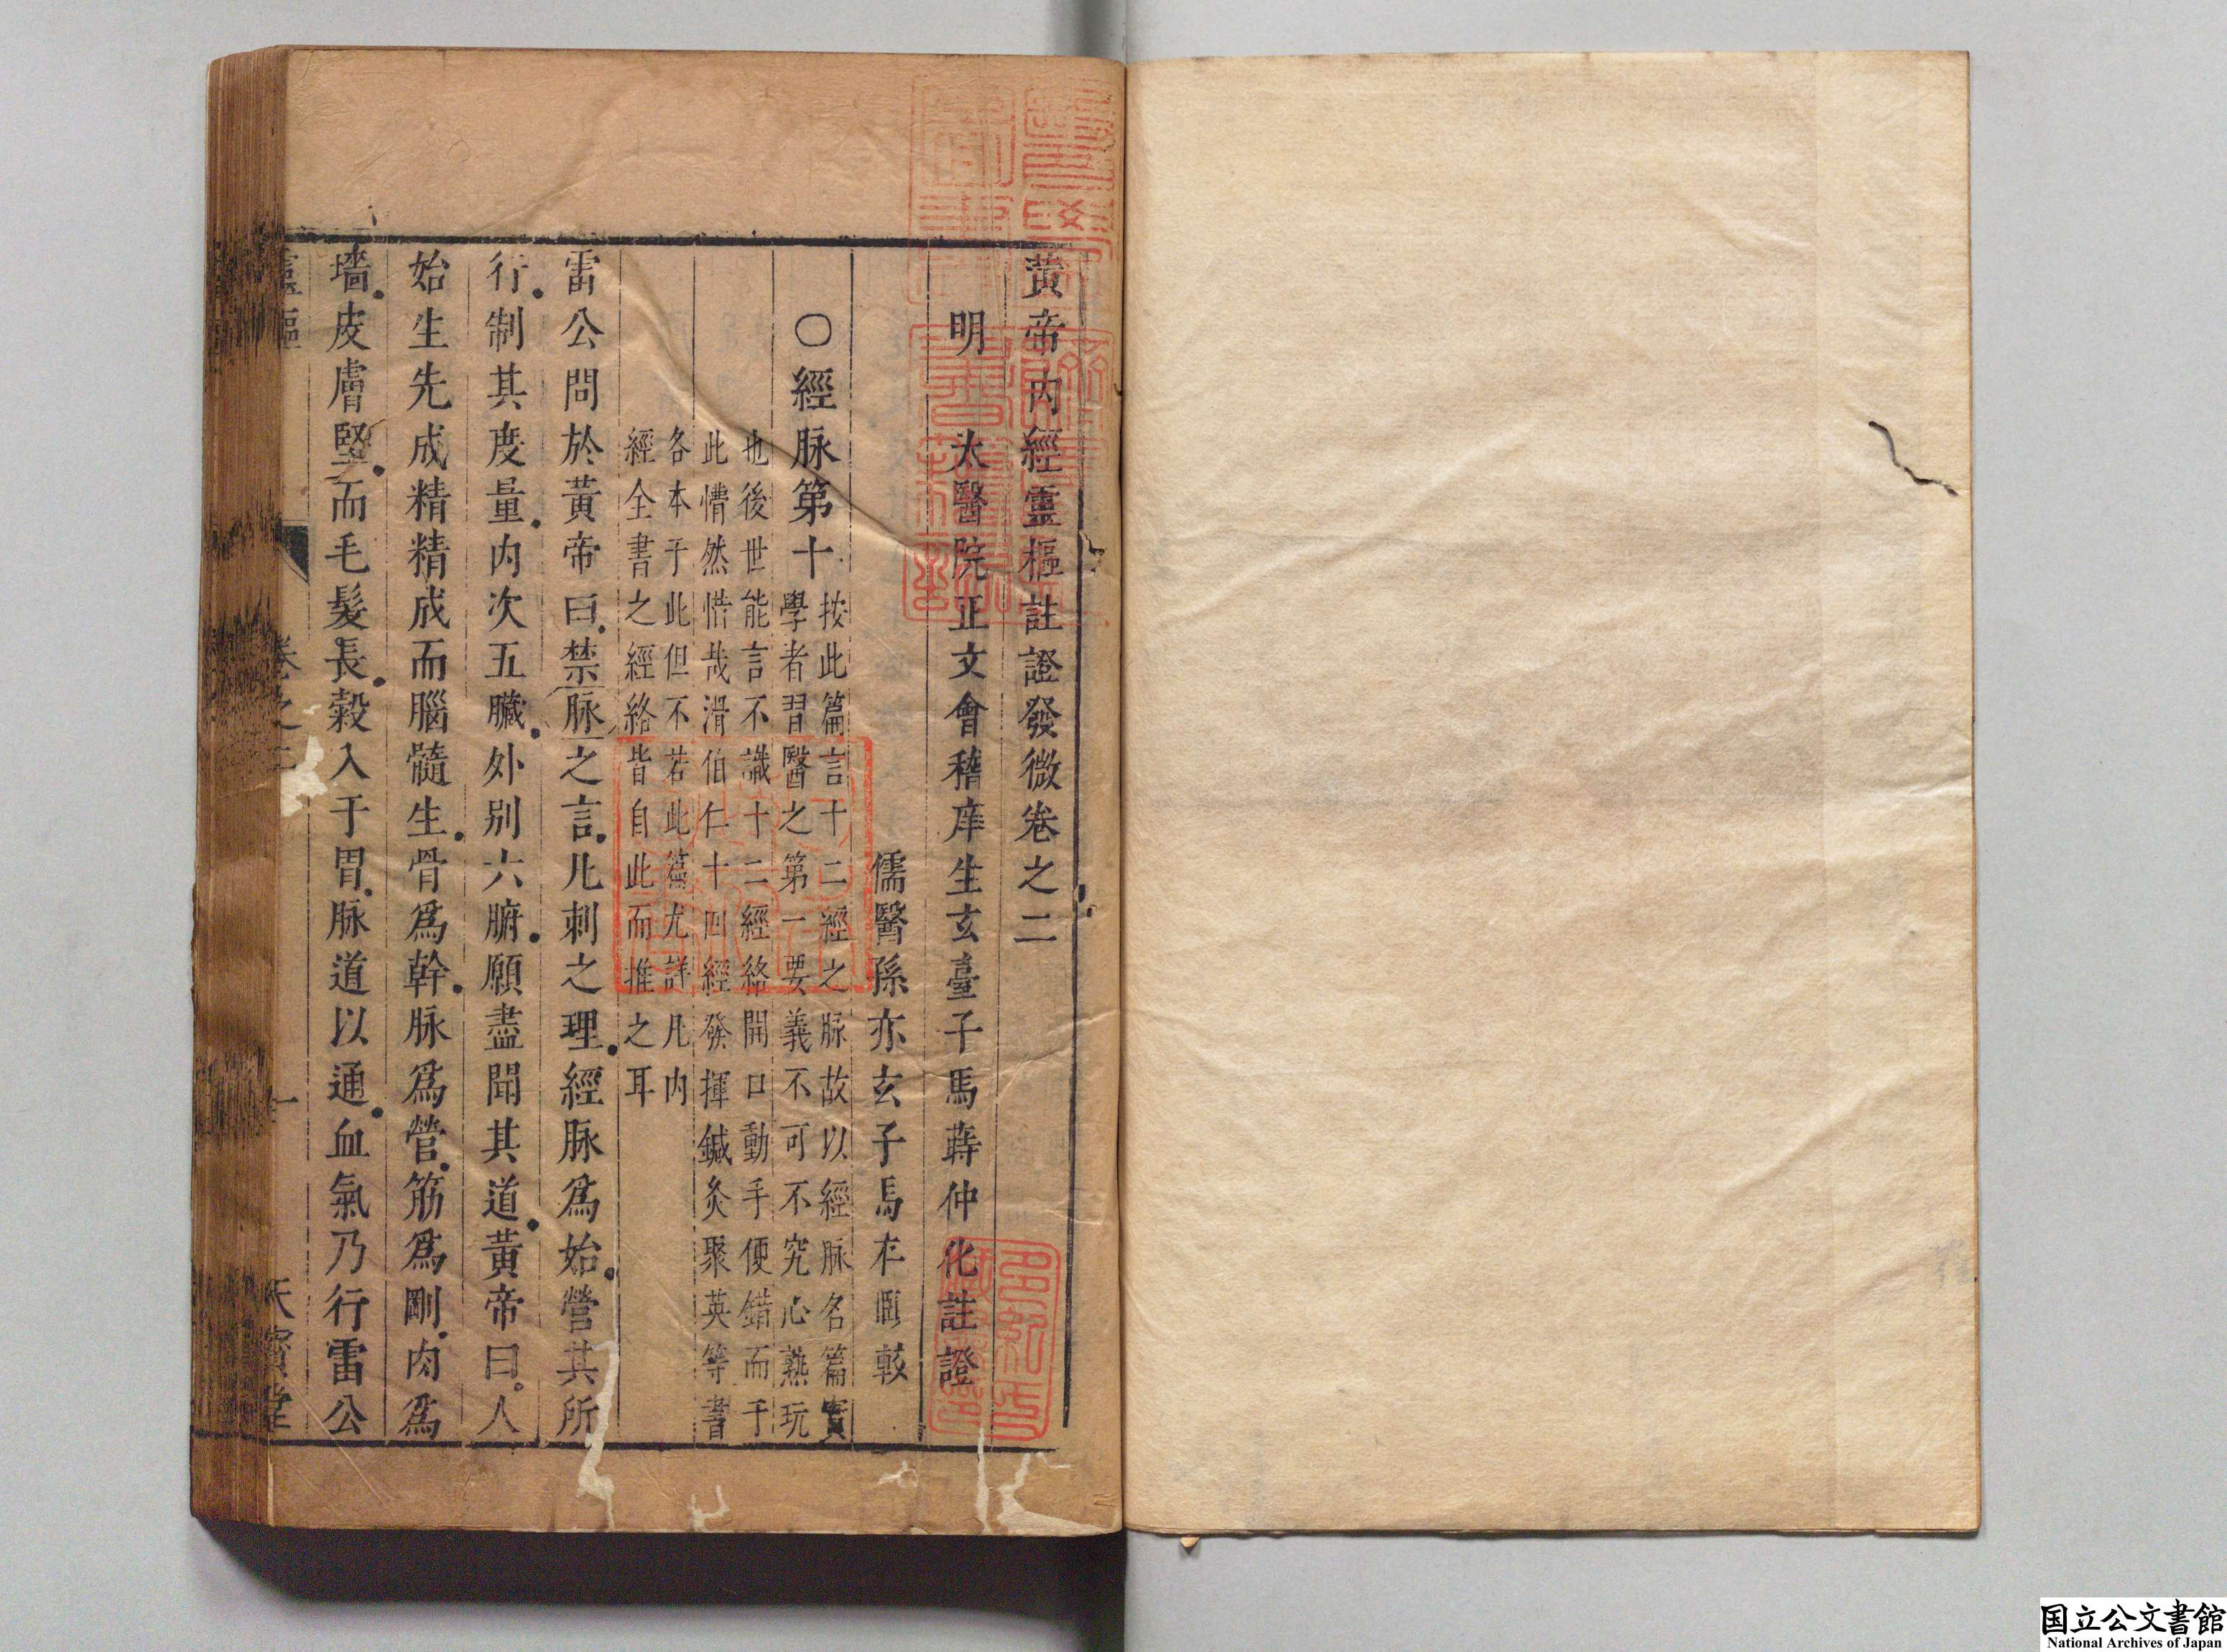 黃帝內經靈樞註證發微卷之二
明 太醫院正文會稽庠生玄臺子馬蒔仲化註證
儒醫孫亦玄子馬存頤較
○經脉第十
按此篇言十二經之脉故以經脉名篇實
學者習醫之第一要義不可不究心熟玩
也後世能言不識十二經絡開口動手便錯而于
此懵然惜哉滑伯仁十四經發揮鍼灸聚英等書
各本于此但不若此篇尤詳凡內
經全書之經絡皆自此而推之耳
雷公問於黃帝曰禁脉之言凡刺之理經脉爲始營其所
行制其度量內次五臟外別六腑願盡聞其道黃帝曰人
始生先成精精成而腦髓生骨爲幹脉爲營筋爲剛肉爲
墻皮膚堅而毛髮長穀入于胃脉道以通血氣乃行雷公
靈樞 卷之二 一 天寶堂
国立公文書館
National Archives of Japan